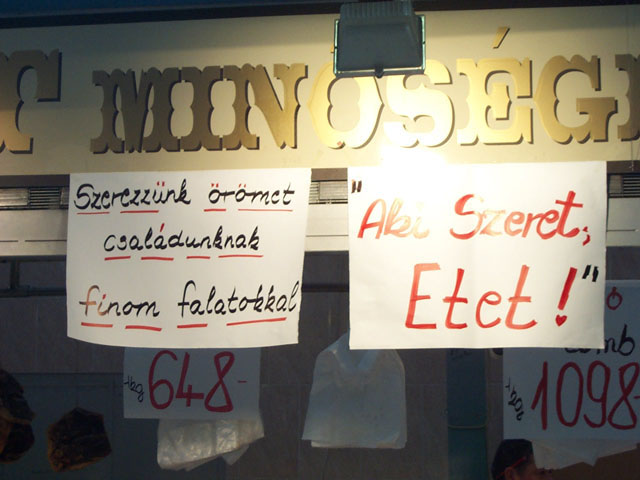 MINŐSÉGI
Szerezzünk örömet
családunknak
finom falatokkal
"Aki Szeret,
Etet!"
648-
comb
1098-